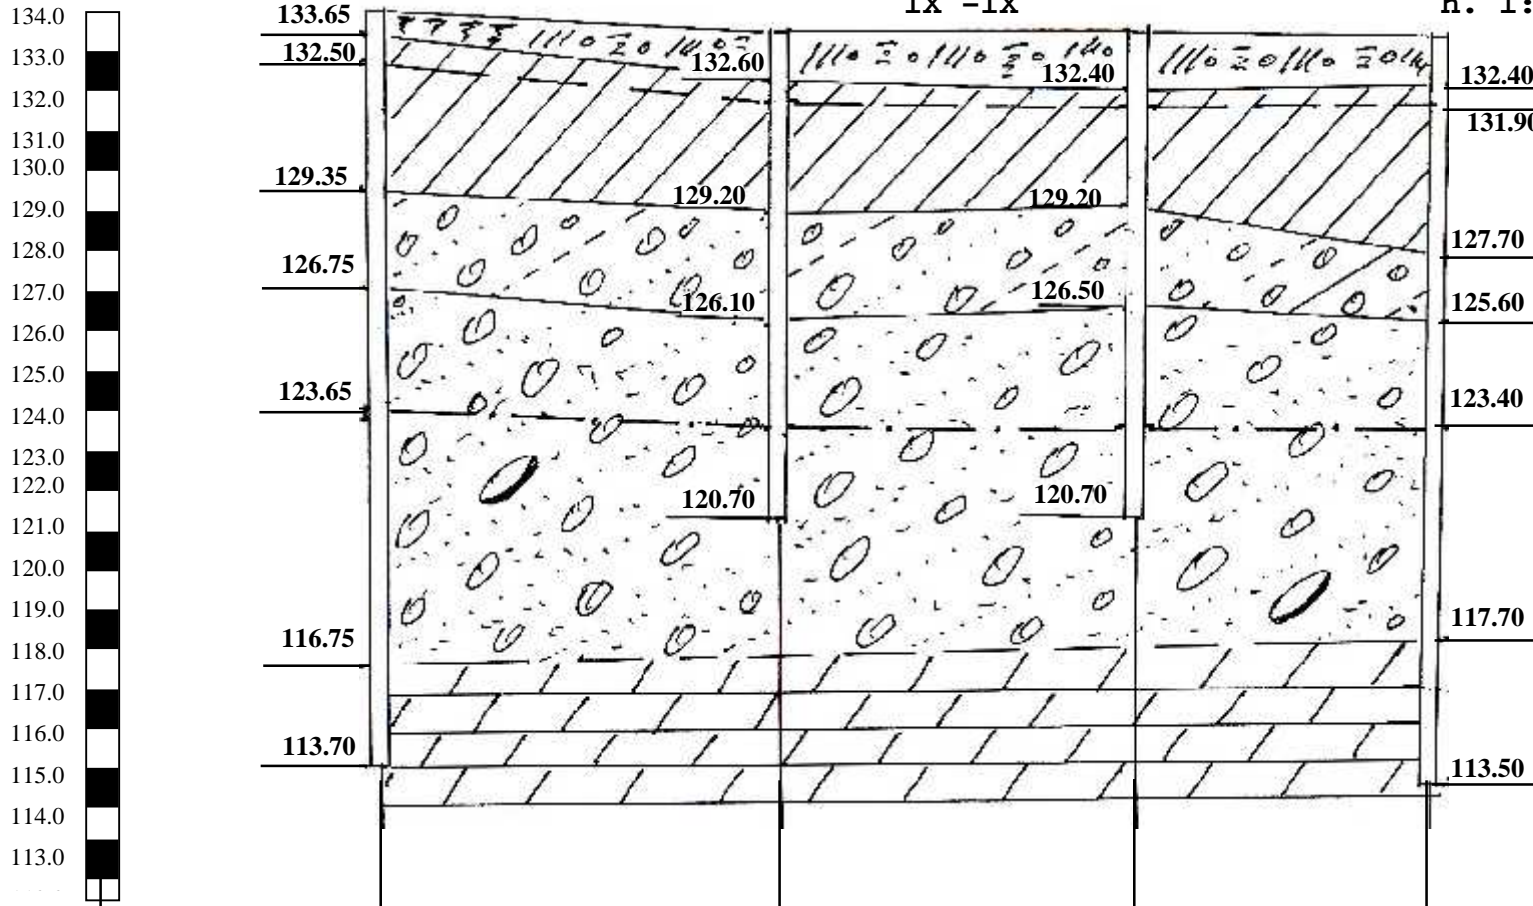 IX -IX
H. 1:
134.0
133.0
132.0
131.0
130.0
129.0
128.0
127.0
126.0
125.0
124.0
123.0
122.0
121.0
120.0
119.0
118.0
117.0
116.0
115.0
114.0
113.0
133.65
132.50
129.35
126.75
123.65
116.75
113.70
132.60
129.20
126.10
120.70
132.40
129.20
126.50
120.70
132.40
131.90
127.70
125.60
123.40
117.70
113.50